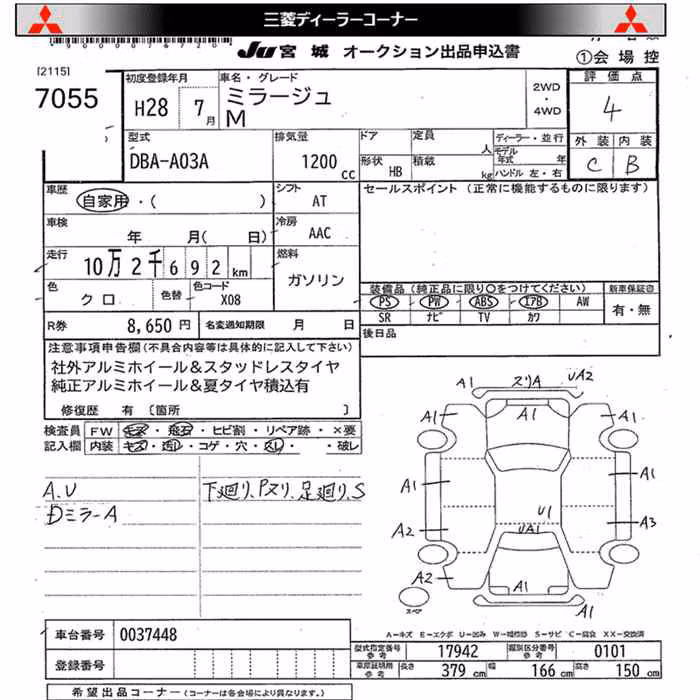 三菱ディーラーコーナー
JU 宮城 オークション出品申込書
①会場控
[2115]
7055
初度登録年月
H28 7月
車名・グレード
ミラージュ
M
2WD
・
4WD
評価点
4
型式
DBA-A03A
排気量
1200cc
ドア
定員
人
形状
HB
積載
kg
ディーラー・並行
モデル年式 年
ハンドル 左・右
外装 内装
C B
車歴
自家用・( )
シフト
AT
セールスポイント (正常に機能するものに限ります)
車検
年 月( 日)
冷房
AAC
走行
10万2千692km
燃料
ガソリン
色
クロ
色替
色コード
X08
装備品(純正品に限り○をつけてください)
新車保証書
PS PW ABS エアB AW
SR ナビ TV カワ
有・無
R券 8,650円
名変通知期限 月 日
後日品
注意事項申告欄(不具合内容等は具体的に記入して下さい)
社外アルミホイール&スタッドレスタイヤ
純正アルミホイール&夏タイヤ積込有
修復歴 有 [箇所 ]
検査員記入欄
FW キズ・飛石・ヒビ割・リペア跡・×要
内装 キズ・汚レ・コゲ・穴・スレ・ ・破レ
A.U
Dミラー A
下廻り、Pスリ、足廻り、S
A1 スリA UA2
A1 A1 A1
A1 A1
U1
A2 UA1 A3
A2 A1
A1
スペア
A-キズ E-エクボ U-凹み W-補修跡 S-サビ C-腐食 XX-交換済
車台番号 0037448
型式指定番号 参考 17942
類別区分番号 参考 0101
登録番号
車庫証明用 参考 長さ 379cm 幅 166cm 高さ 150cm
希望出品コーナー(コーナーは各会場により異なります。)